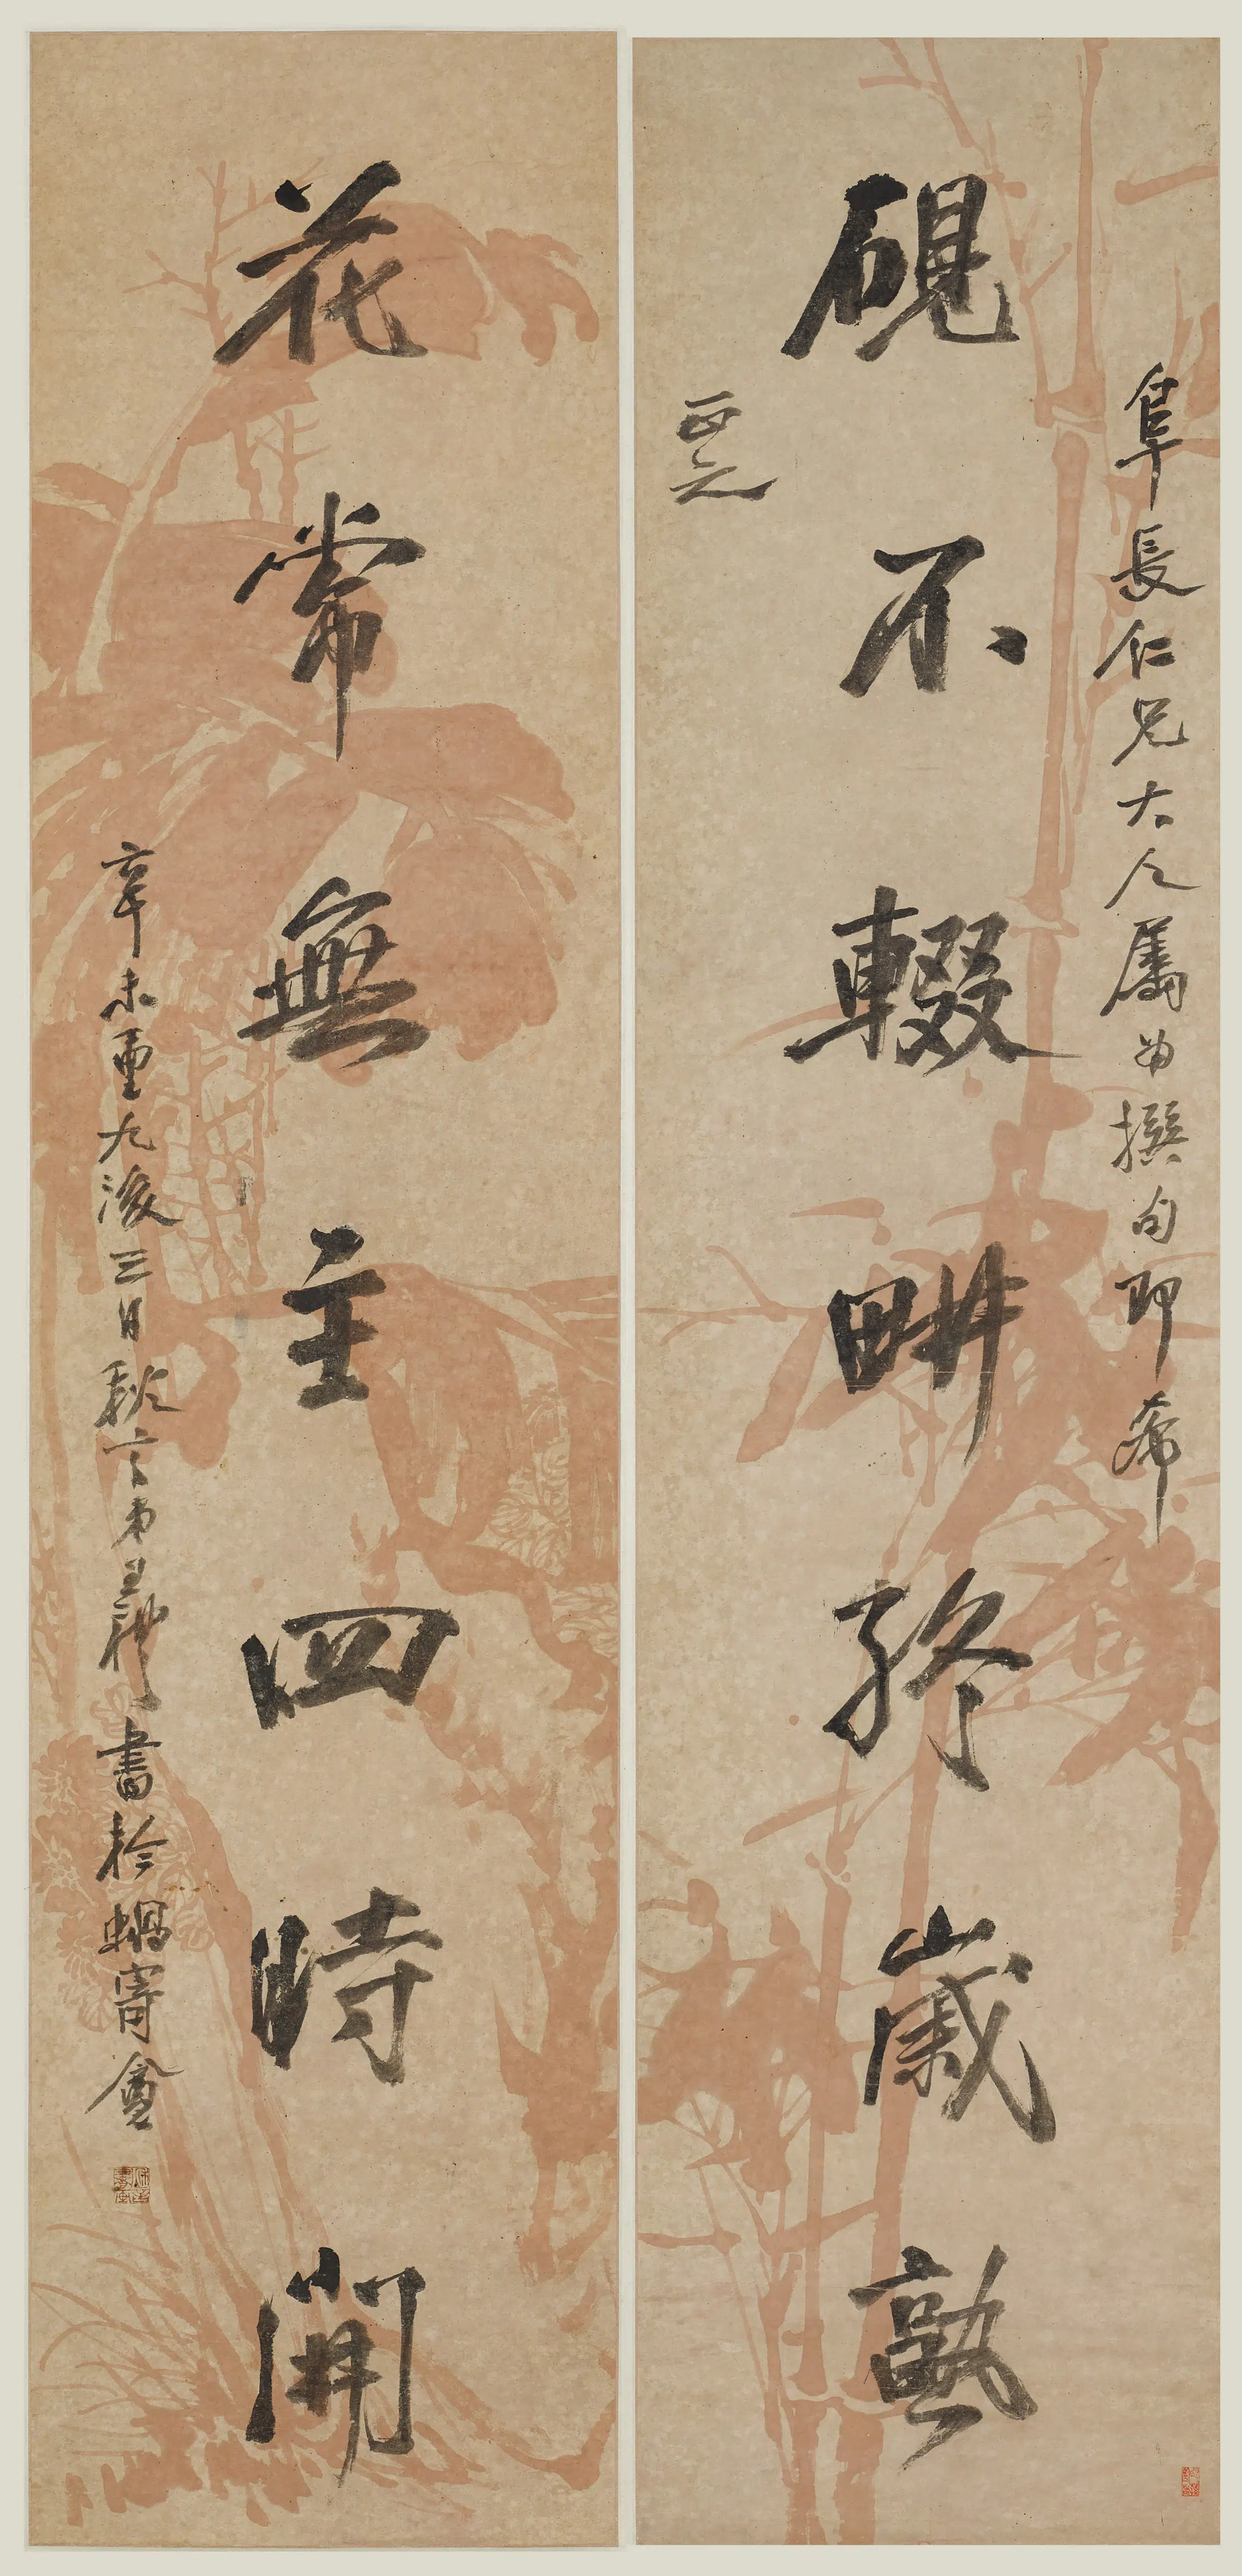 阜長仁兄大人屬書撰句即希
硯不輟畊終歲熟
正之
花常無主四時開
辛未重九後三日秋言弟義神書於蝸寄盦